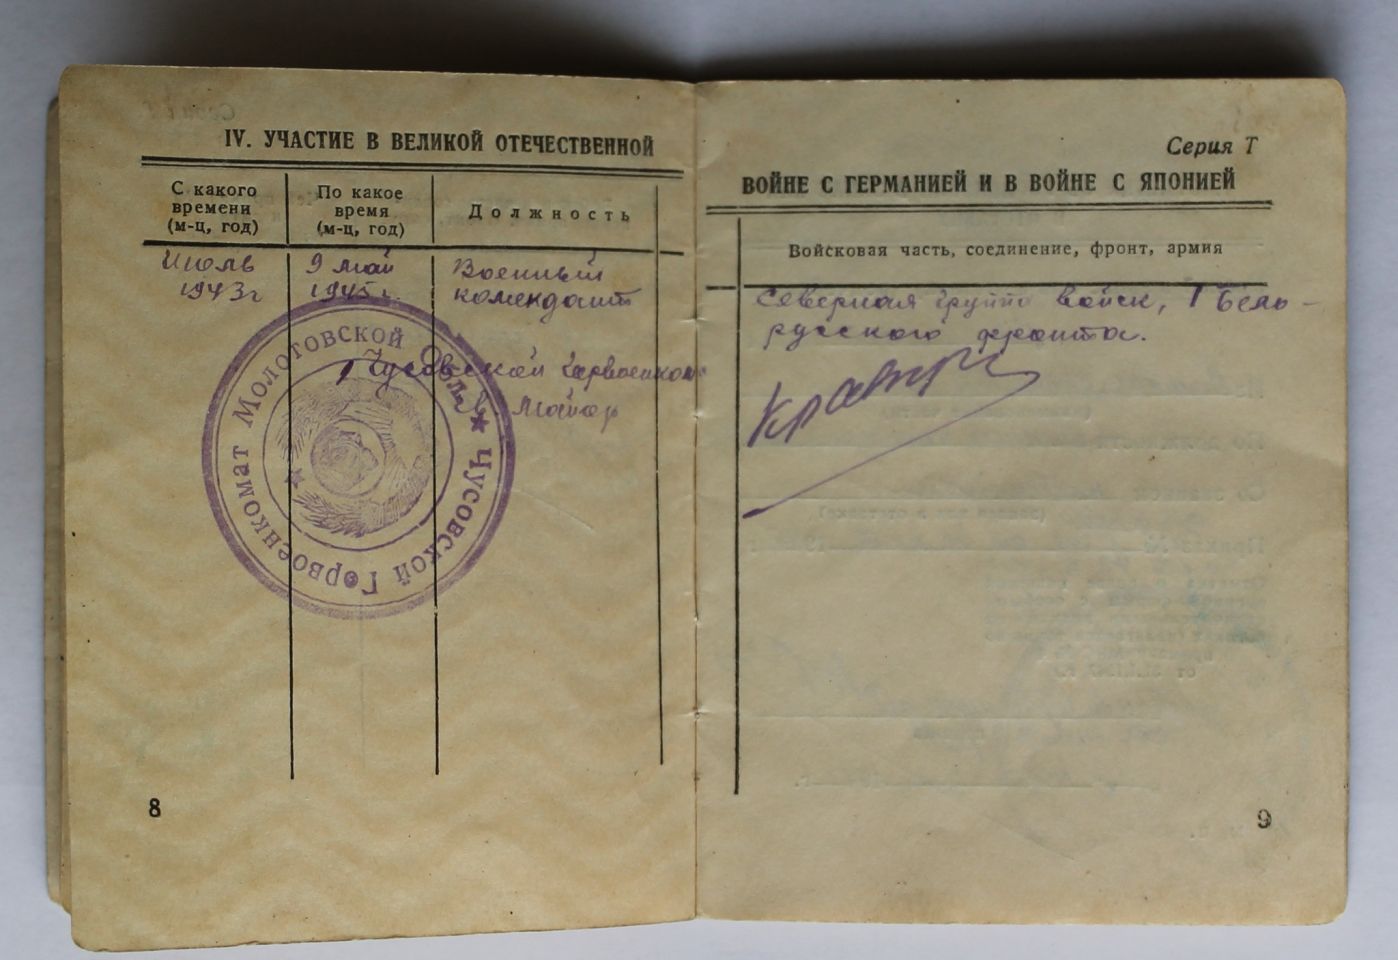 IV. УЧАСТИЕ В ВЕЛИКОЙ ОТЕЧЕСТВЕННОЙ
С какого времени (м-ц, год)
По какое время (м-ц, год)
Должность
Июль 1943г
9 май 1945 г.
Военный
комендант
Чусовской горвоенком
Майор
ЧУСОВСКОЙ ГОРВОЕНКОМАТ МОЛОТОВСКОЙ
8
Серия Т
ВОЙНЕ С ГЕРМАНИЕЙ И В ВОЙНЕ С ЯПОНИЕЙ
Войсковая часть, соединение, фронт, армия
Северная группа войск, 1 Бело-
русского фронта.
9